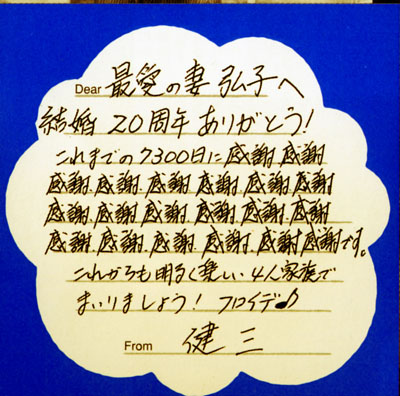 Dear 最愛の妻 弘子へ
結婚 20周年 ありがとう!
これまでの7300日に感謝 感謝
感謝 感謝 感謝 感謝 感謝 感謝
感謝 感謝 感謝 感謝 感謝 感謝
感謝 感謝 感謝 感謝 感謝 感謝です。
これからも明るく楽しい 4人家族で
まいりましょう! フロイデ♪
From 健三